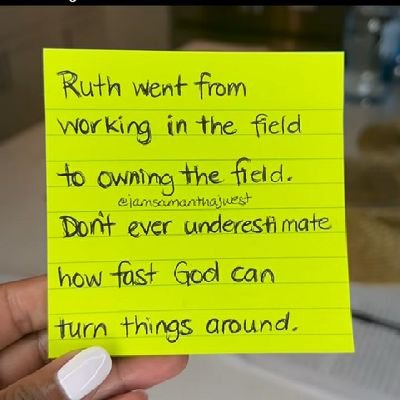 Ruth went from
working in the field
to owning the field.
@iamsamanthajwest
Don't ever underestimate
how fast God can
turn things around.